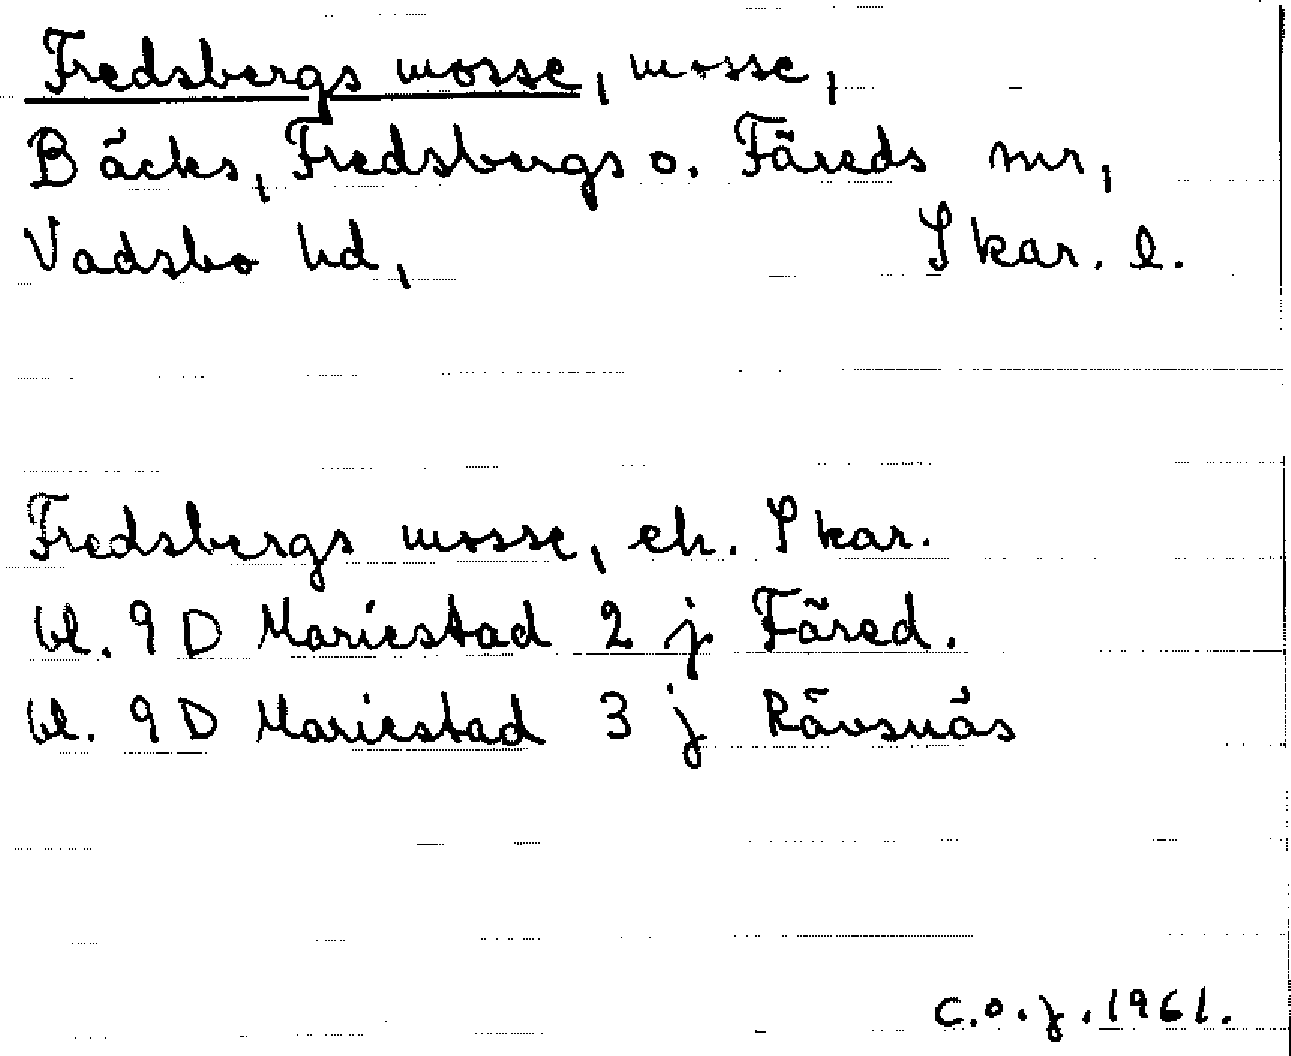 Fredsbergs mosse, mosse,
Bäcks, Fredsbergs o. Färeds snr,
Vadsbo hd, Skar. l.
Fredsbergs mosse, ek. Skar.
bl. 9 D Mariestad 2 j Färed.
bl. 9 D Mariestad 3 j Rävsnäs
C.o.j. 1961.